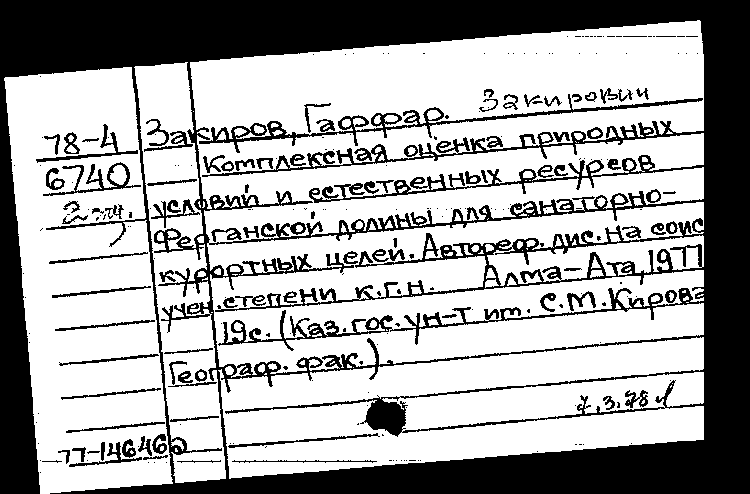 78-4 Закиров, Гаффар. Закирович
6740 Комплексная оценка природных
2 экз. условий и естественных ресурсов
Ферганской долины для санаторно-
курортных целей. Автореф. дис. на соис
учен. степени к.г.н. Алма-Ата, 1977
19с. (Каз. гос. ун-т им. С.М. Кирова
Географ. фак.).
7.3.78
77-14646